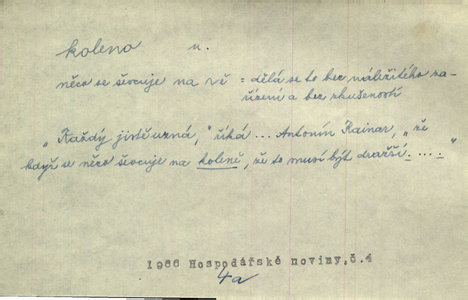 koleno n.
něco se ševcuje na ně = dělá se to bez náležitého za-
řízení a bez zkušeností
„Každý jistě uzná," říká ... Antonín Rainar, „že
když se něco ševcuje na koleně, že to musí být dražší. ... "
1966 Hospodářské noviny, č. 4
4a